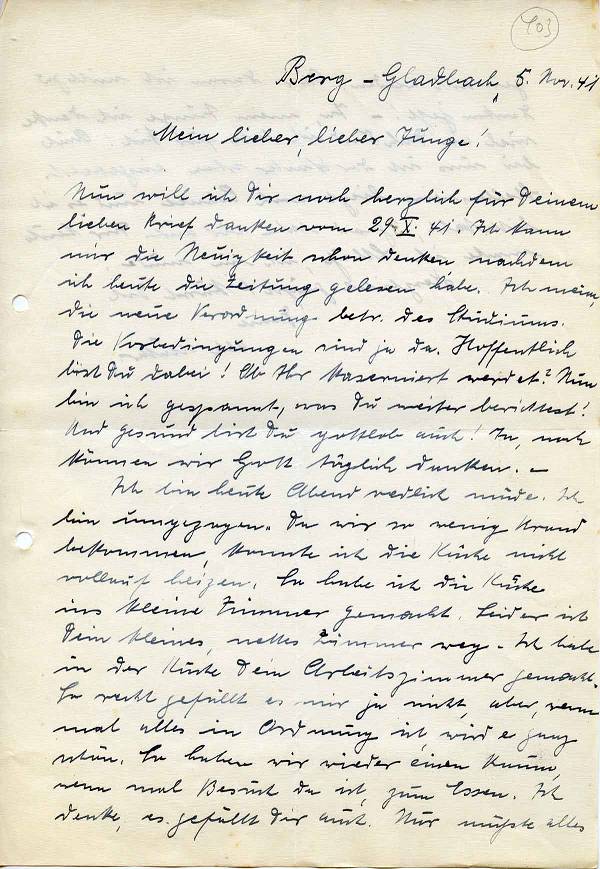 103
Berg-Gladbach, 5. Nov. 41
Mein lieber, lieber Junge!
Nun will ich Dir noch herzlich für Deinen
lieben Brief danken vom 29. X. 41. Ich kann
mir die Neuigkeit schon denken, nachdem
ich heute die Zeitung gelesen habe. Ich meine,
die neue Verordnung betr. des Studiums.
Die Vorbedingungen sind ja da. Hoffentlich
bist Du dabei! Ob Ihr kaserniert werdet? Nun
bin ich gespannt, was Du weiter berichtest!
Und gesund bist Du gottlob auch! Ja, noch
können wir Gott täglich danken. –
Ich bin heute Abend redlich müde. Ich
bin umgezogen. Da wir so wenig Brand
bekommen, konnte ich die Küche nicht
vollauf heizen. So habe ich die Küche
ins kleine Zimmer gemacht. Leider ist
Dein kleines, nettes Zimmer weg. Ich habe
in der Küche Dein Arbeitszimmer gemacht.
So recht gefällt es mir ja nicht, aber, wenn
mal alles in Ordnung ist, wird e ganz
schön. So haben wir wieder einen Raum,
wenn mal Besuch da ist, zum Essen. Ich
denke, es gefällt Dir auch. Nur müßte alles